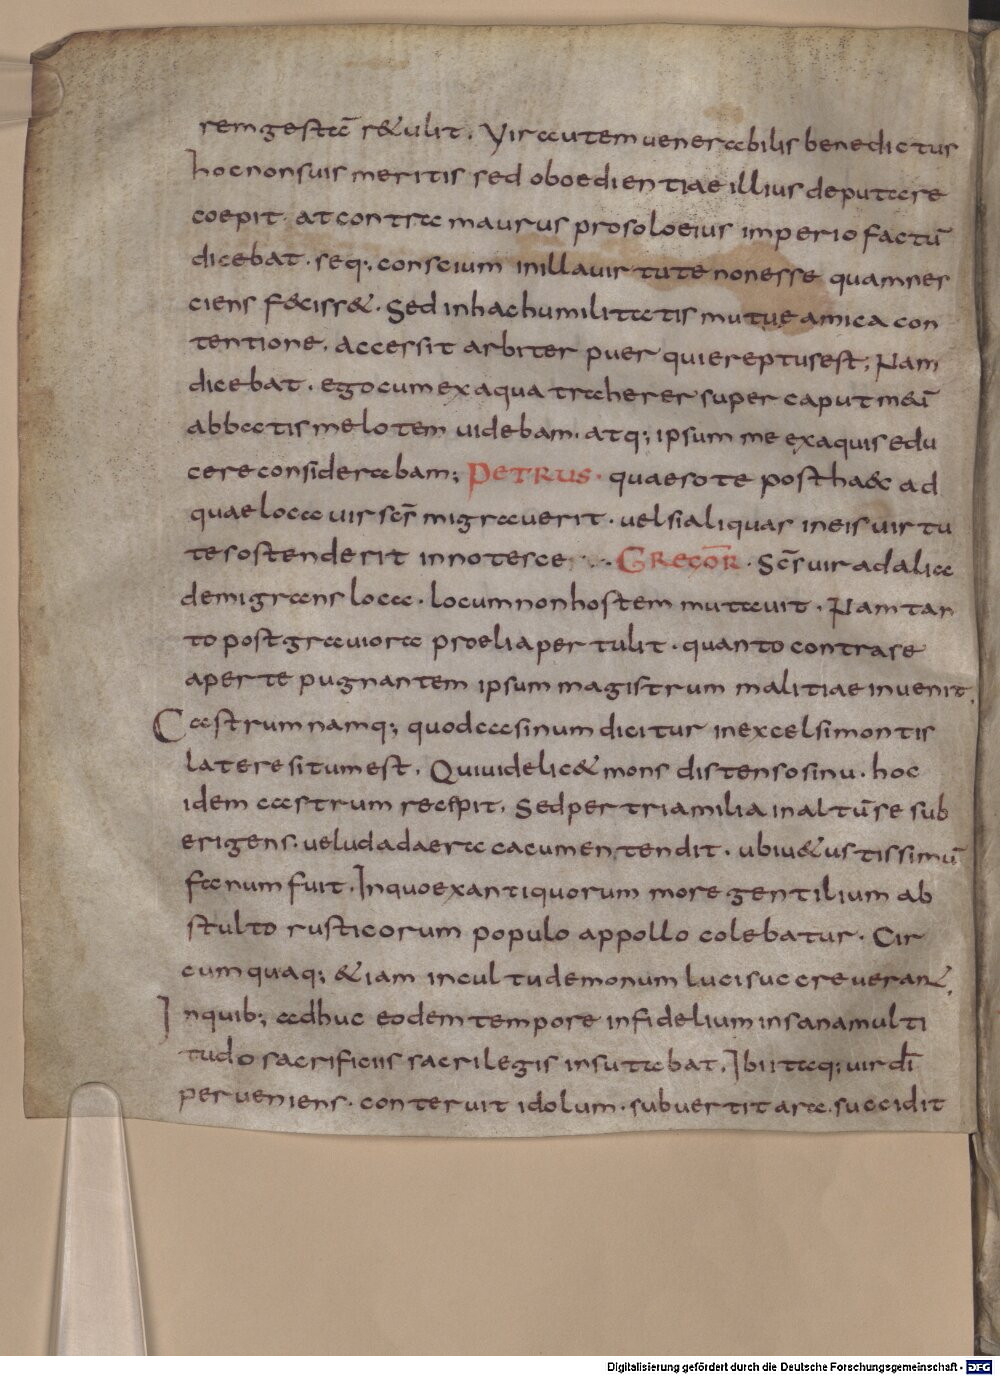 rem gestā r&ulit. Vir autem uenerabilis benedictus
hoc non suis meritis sed oboedientiae illius deputare
coepit. at contra maurus pro solo eius imperio factū
dicebat. seq; conscium in illa uirtute non esse quam nes
ciens f&ciss&. Sed in hac humilitatis mutue amica con
tentione. accessit arbiter puer qui ereptus est; Nam
dicebat. ego cum ex aqua traherer super caput meū
abbatis melotem uidebam. atq; ipsum me ex aquis edu
cere considerabam; PETRUS. quaeso te post ha&c ad
quae loca uir scs̄ migrauerit. uel si aliquas in eis uirtu
tes ostenderit innotesce. GREGOR̄. Scs̄ uir ad alia
demigrans loca. locum non hostem mutauit. Nam tan
to post grauiora proelia pertulit. quanto contra se
aperte pugnantem ipsum magistrum malitiae inuenit.
Castrum namq; quod casinum dicitur in excelsi montis
latere situm est. Qui uidelic& mons distenso sinu. hoc
idem castrum recepit. Sed per tria milia in altū se sub
erigens. uelud ad aera cacumen tendit. ubi u&ustissimū
fanum fuit. In quo ex antiquorum more gentilium ab
stulto rusticorum populo appollo colebatur. Cir
cumquaq; &iam in cultu demonum luci succreuerant.
In quib; adhuc eodem tempore infidelium insana multi
tudo sacrificiis sacrilegis insutabat. Ibi itaq; uir dī
perueniens. conteruit idolum. subuertit ara. succidit
Digitalisierung gefördert durch die Deutsche Forschungsgemeinschaft - DFG